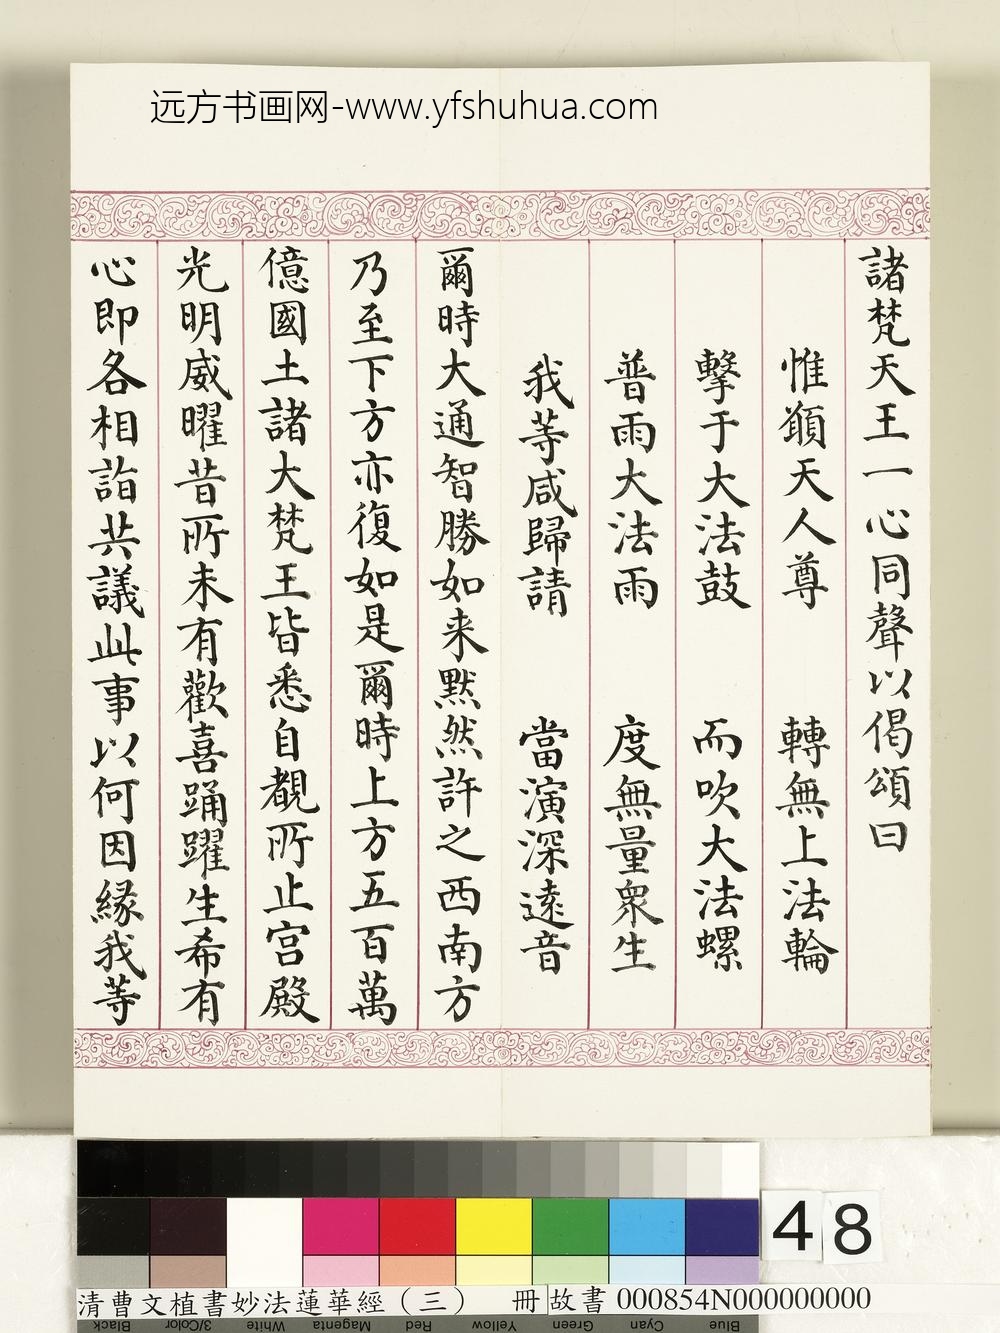 远方书画网-www.yfshuhua.com
諸梵天王一心同聲以偈頌曰
惟顚天人尊　轉無上法輪
擊于大法鼓　而吹大法螺
普雨大法雨　度無量衆生
我等咸歸請　當演深遠音
爾時大通智勝如来默然許之西南方
乃至下方亦復如是爾時上方五百萬
億國土諸大梵王皆悉自覩所止宮殿
光明威曜昔所未有歡喜踊躍生希有
心即各相詣共議此事以何因緣我等
48
清曹文植書妙法蓮華經（三） 冊 故書 000854N000000000
Black 3/Color White Magenta Red Yellow Green Cyan Blue